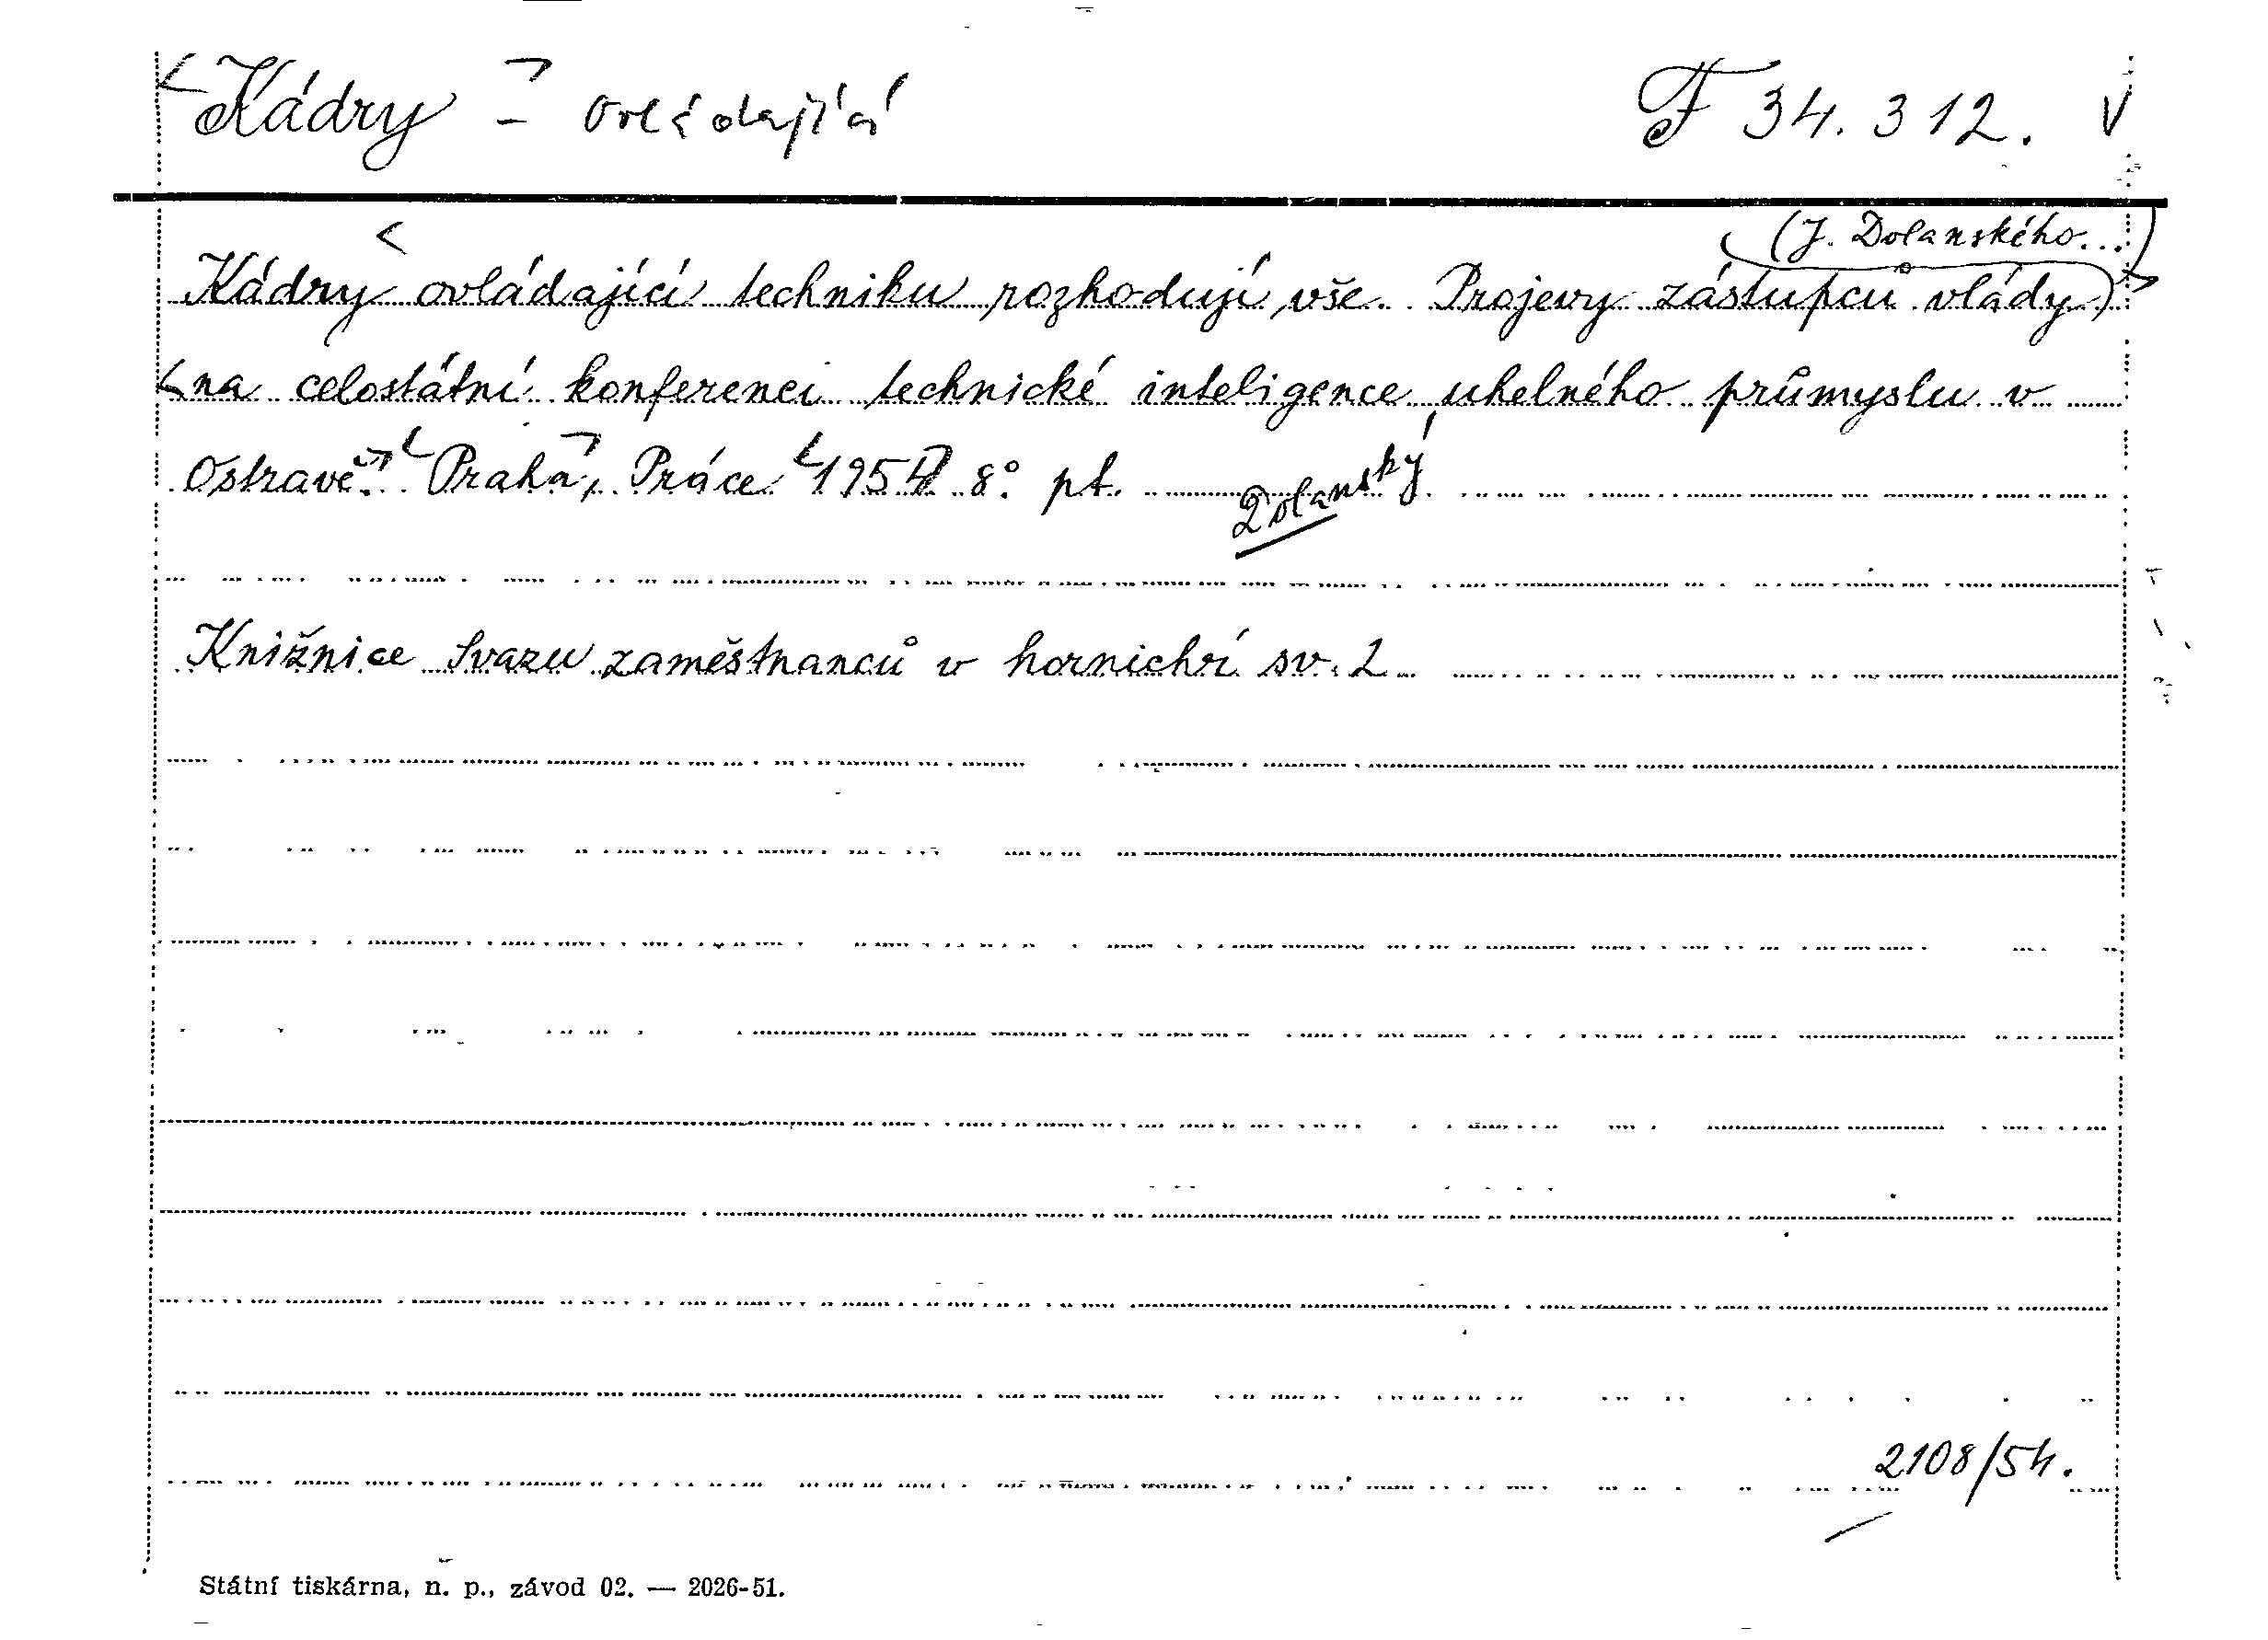 Kádry - ovládající F 34.312. V
(J. Dolanského...)
Kádry ovládající techniku rozhodují vše. Projevy zástupců vlády
na celostátní konferenci technické inteligence uhelného průmyslu v
Ostravě. Praha, Práce 1954 8° pt.
Dolanský
Knižnice Svazu zaměstnanců v hornictví sv. 2
2108/54.
Státní tiskárna, n. p., závod 02. — 2026-51.